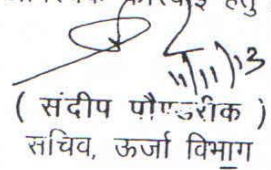 आवश्यक कार्रवाई हेतु
11/11/13
( संदीप पौण्डरीक )
सचिव, ऊर्जा विभाग